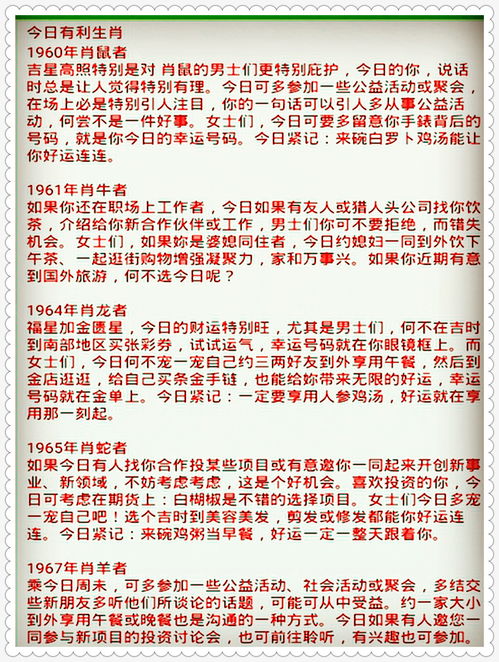 今日有利生肖
1960年肖鼠者
吉星高照特别是对 肖鼠的男士们更特别庇护，今日的你，说话
时总是让人觉得特别有理。今日可多参加一些公益活动或聚会，
在场上必是特别引人注目，你的一句话可以引人多从事公益活
动，何尝不是一件好事。女士们，今日可要多留意你手錶背后的
号码，就是你今日的幸运号码。今日紧记：来碗白罗卜鸡汤能让
你好运连连。
1961年肖牛者
如果你还在职场上工作者，今日如果有友人或猎人头公司找你饮
茶，介绍给你新合作伙伴或工作，男士们你可不要拒绝，而错失
机会。女士们，如果妳是婆媳同住者，今日约媳妇一同到外饮下
午茶、一起逛街购物增强凝聚力，家和万事兴。如果你近期有意
到国外旅游，何不选今日呢？
1964年肖龙者
福星加金匮星，今日的财运特别旺，尤其是男士们，何不在吉时
到南部地区买张彩券，试试运气，幸运号码就在你眼镜框上。而
女士们，今日何不宠一宠自己约三两好友到外享用午餐，然后到
金店逛逛，给自己买条金手链，也能给妳带来无限的好运，幸运
号码就在金单上。今日紧记：一定要享用人参鸡汤，好运就在享
用那一刻起。
1965年肖蛇者
如果今日有人找你合作投某些项目或有意邀你一同起来开创新事
业、新领域，不妨考虑考虑，这是个好机会。喜欢投资的你，今
日可考虑在期货上：白椒椒是不错的选择项目。女士们今日多宠
一宠自己吧！选个吉时到美容美发，剪发或修发都能你好运连
连。今日紧记：来碗鸡粥当早餐，好运一定一整天跟着你。
1967年肖羊者
乘今日周未，可多参加一些公益活动、社会活动或聚会，多结交
些新朋友多听他们所谈论的话题，可能可从中受益。约一家大小
到外享用午餐或晚餐也是沟通的一种方式。今日如果有人邀您一
同参与新项目的投资讨论会，也可前往聆听，有兴趣也可参加。